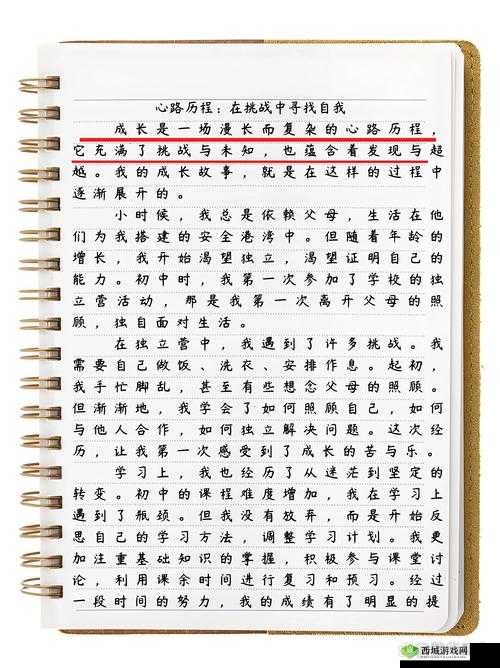 心路历程：在挑战中寻找自我
成长是一场漫长而复杂的心路历程，
它充满了挑战与未知，也蕴含着发现与超
越。我的成长故事，就是在这样的过程中
逐渐展开的。
小时候，我总是依赖父母，生活在他
们为我搭建的安全港湾中。但随着年龄的
增长，我开始渴望独立，渴望证明自己的
能力。初中时，我第一次参加了学校的独
立营活动，那是我第一次离开父母的照
顾，独自面对生活。
在独立营中，我遇到了许多挑战。我
需要自己做饭、洗衣、安排作息。起初，
我手忙脚乱，甚至有些想念父母的照顾。
但渐渐地，我学会了如何照顾自己，如何
与他人合作，如何独立解决问题。这次经
历，让我第一次感受到了成长的苦与乐。
学习上，我也经历了从迷茫到坚定的
转变。初中的课程难度增加，我在学习上
遇到了瓶颈。但我没有放弃，而是开始反
思自己的学习方法，调整学习计划。我更
加注重基础知识的掌握，积极参与课堂讨
论，利用课余时间进行复习和预习。经过
一段时间的努力，我的成绩有了明显的提
西城游戏网